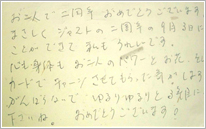 お二人で二周年 おめでとうございます。
まさしく ジャストの二周年の9月3日に
ことができて とても うれしいです。
心も身体も お二人のパワーと お花、そし
カードで チャージ させてもらった 気がします
がんばらないで ゆるりゆるりと 3周年に
下さいね。 おめでとうございます!